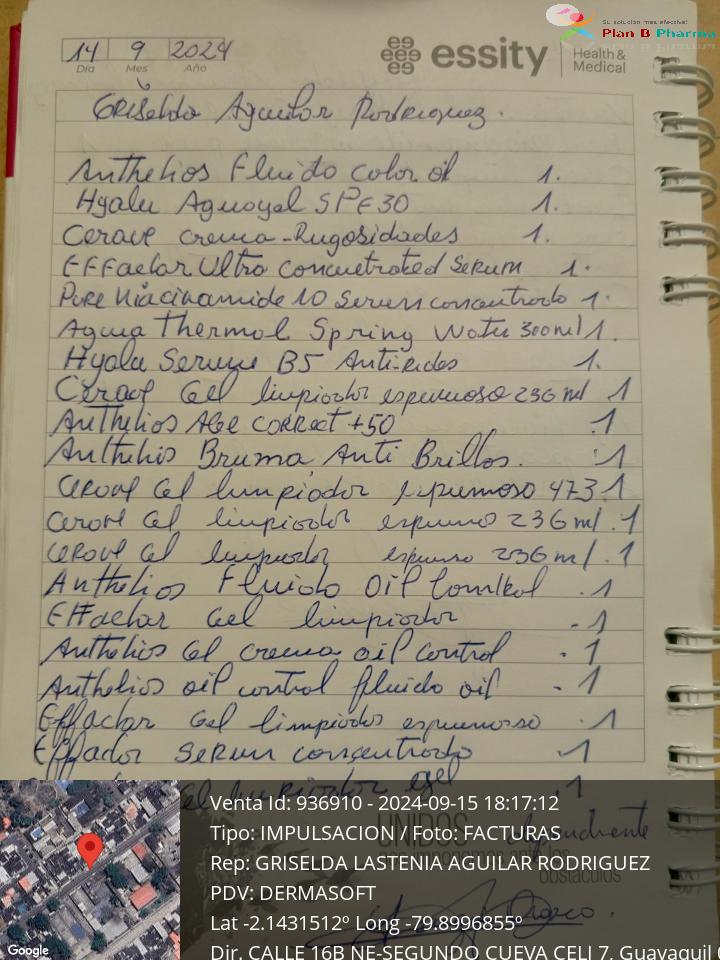 Su solución mas efectiva!
Plan B Pharma
14 9 2024
Día Mes Año
essity
Health &
Medical
Griselda Aguilar Rodriguez.
Anthelios Fluido color oil 1.
Hyalu Aguagel SPF 30 1.
Cerave crema-Rugosidades 1.
EFFaclar Ultra Concnetrated Serum 1.
Pure Niacinamide 10 Serum concentrado 1.
Agua Thermal Spring Water 300ml 1.
Hyalu Serum B5 Anti-rides 1.
Cerave Gel limpiador espumoso 236 ml 1
Anthelios Age correct +50 .1
Anthelios Bruma Anti Brillos. 1
Cerave Gel limpiador espumoso 473.1
Cerave Gel limpiador espumo 236 ml .1
Cerave Gel limpiador espumo 236 ml .1
Anthelios Fluido Oil Control .1
Effaclar Gel limpiador .1
Anthelios Gel crema oil control .1
Anthelios oil control fluido oil .1
Effaclar Gel limpiador espumoso .1
Effaclar Serum concentrado .1
Gel limpiador .1
UNIDOS
obstáculos
Venta Id: 936910 - 2024-09-15 18:17:12
Tipo: IMPULSACION / Foto: FACTURAS
Rep: GRISELDA LASTENIA AGUILAR RODRIGUEZ
PDV: DERMASOFT
Lat -2.1431512º Long -79.8996855º
Dir. CALLE 16B NE-SEGUNDO CUEVA CELI 7, Guayaquil
Google